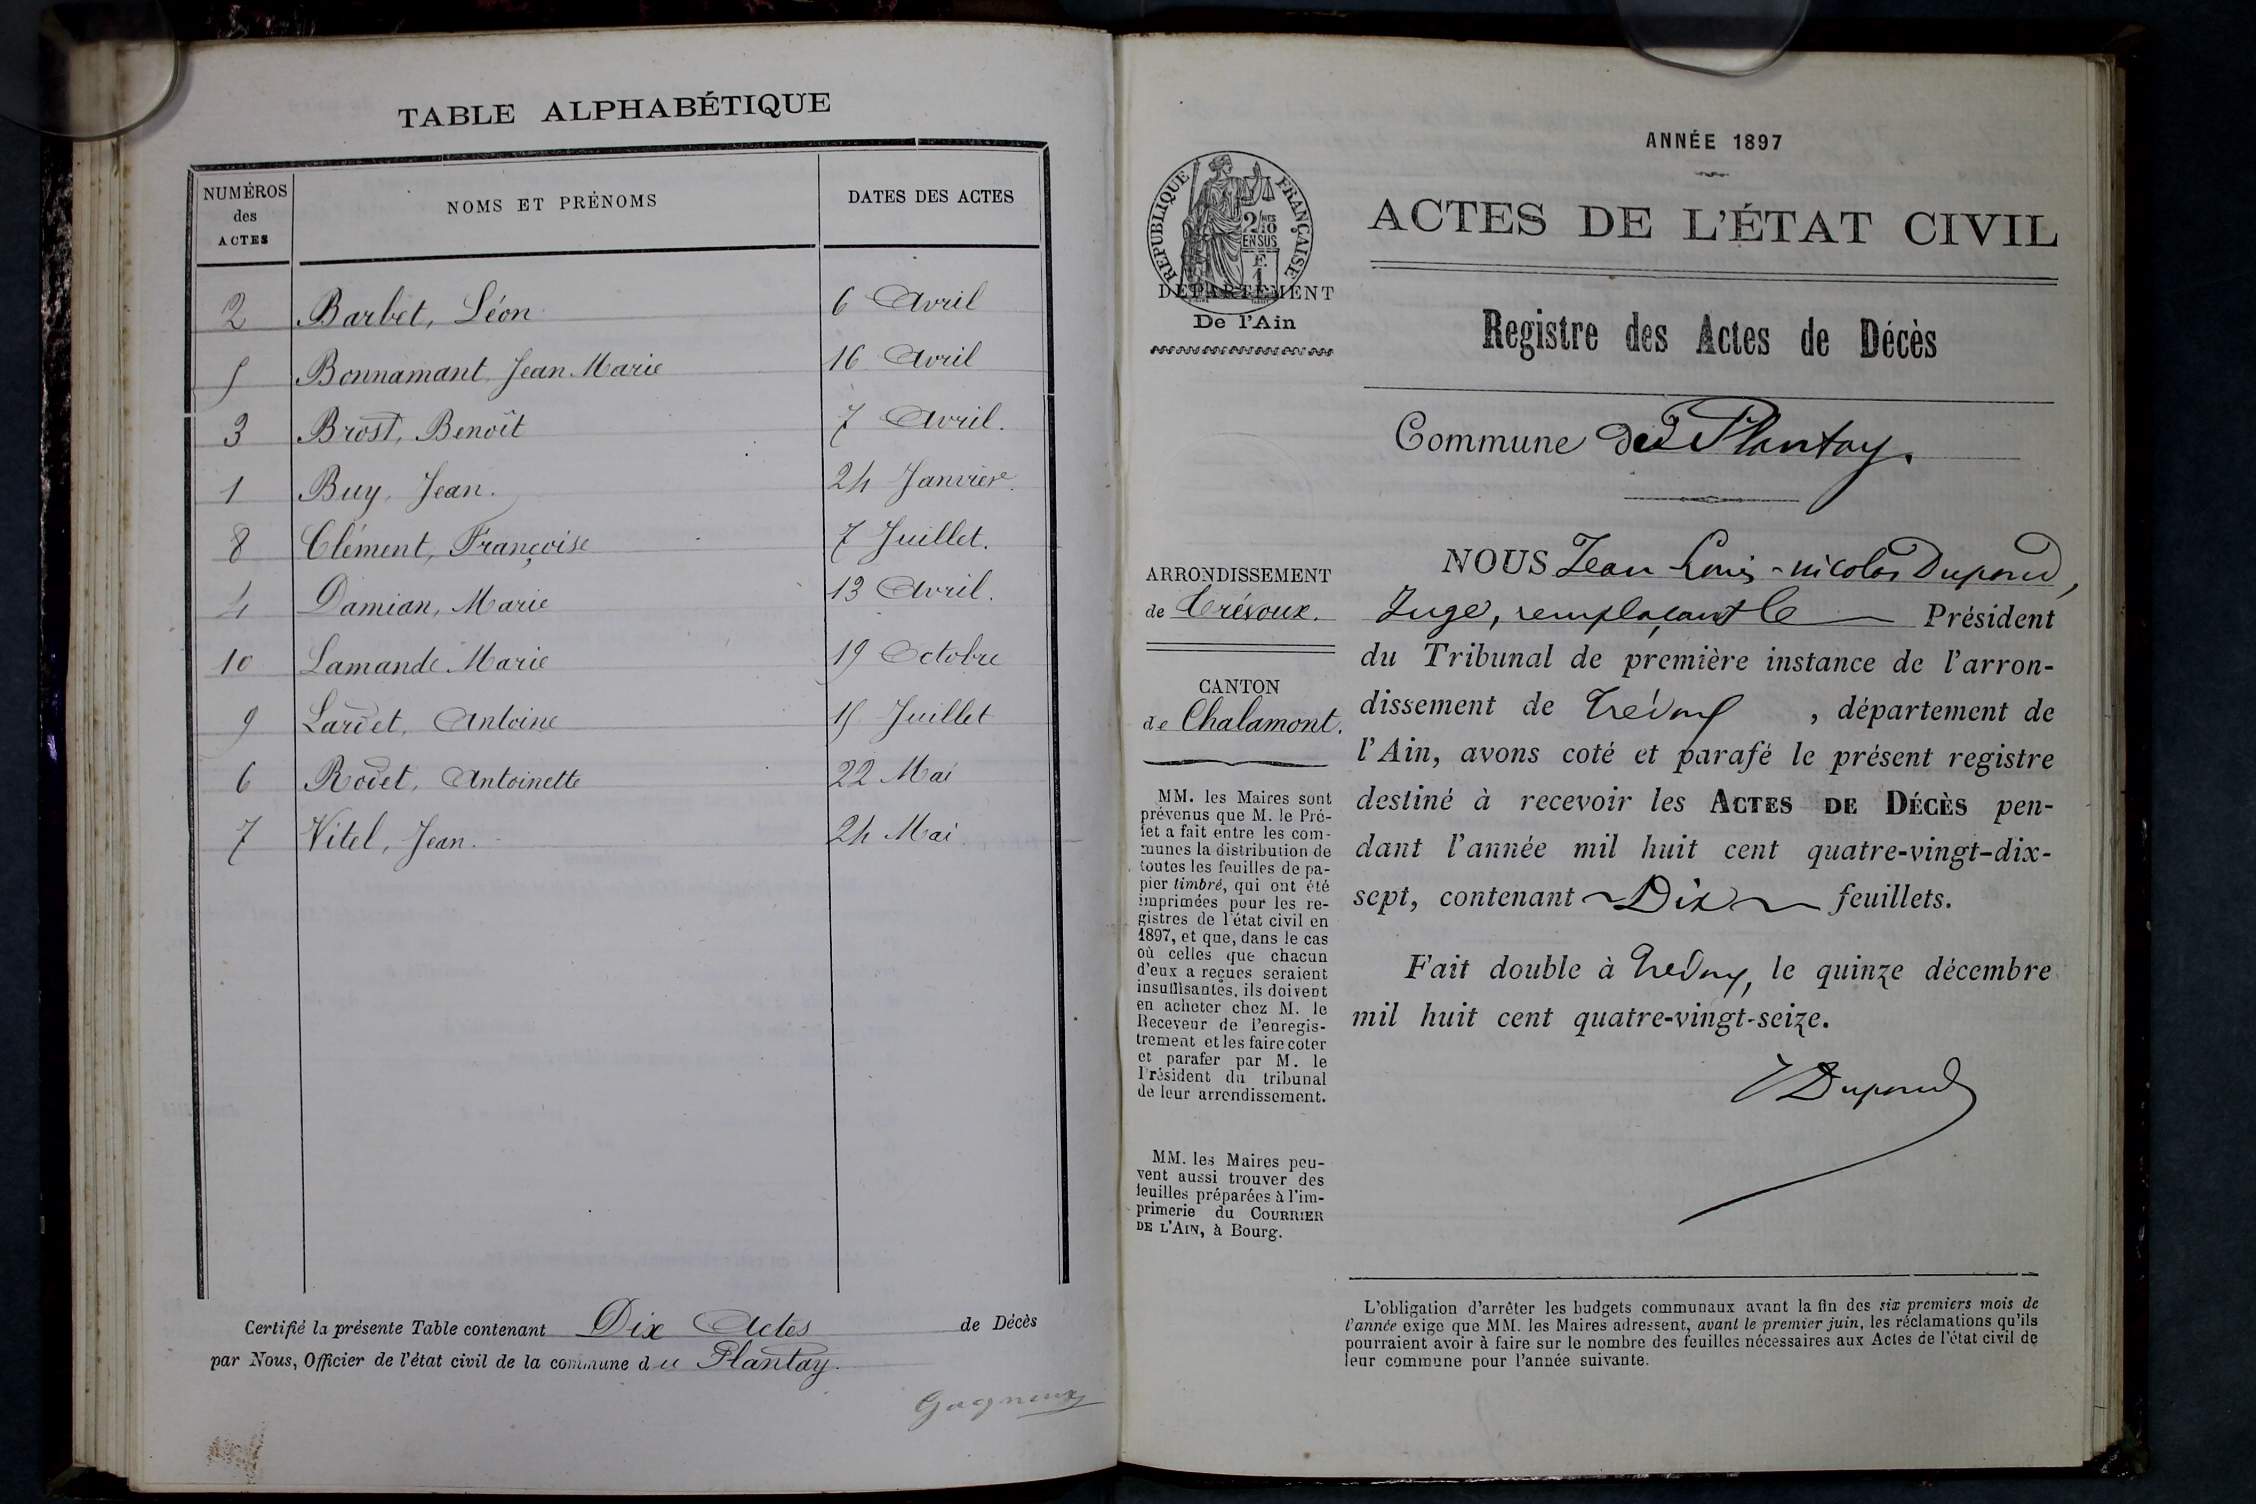 TABLE ALPHABÉTIQUE
NUMÉROS des ACTES
NOMS ET PRÉNOMS
DATES DES ACTES
2 Barbet, Léon 6 Avril
5 Bonnamant Jean Marie 16 Avril
3 Brost, Benoît 7 Avril.
1 Buy, Jean. 24 Janvier.
8 Clément, Françoise 7 Juillet.
4 Damian, Marie 13 Avril.
10 Lamande Marie 19 Octobre
9 Lardet, Antoine 15 Juillet
6 Rodet, Antoinette 22 Mai
7 Vitel, Jean. 24 Mai.
Certifié la présente Table contenant Dix Actes de Décès
par Nous, Officier de l'état civil de la commune du Plantay.
Gagneux
ANNÉE 1897
RÉPUBLIQUE FRANÇAISE
2/10 EN SUS
F. 1
DÉPARTEMENT
De l'Ain
ACTES DE L'ÉTAT CIVIL
Registre des Actes de Décès
Commune de Plantay.
ARRONDISSEMENT
de Trévoux.
CANTON
de Chalamont.
MM. les Maires sont
prévenus que M. le Pré-
fet a fait entre les com-
munes la distribution de
toutes les feuilles de pa-
pier timbré, qui ont été
imprimées pour les re-
gistres de l'état civil en
1897, et que, dans le cas
où celles que chacun
d'eux a reçues seraient
insuffisantes, ils doivent
en acheter chez M. le
Receveur de l'enregis-
trement et les faire coter
et parafer par M. le
Président du tribunal
de leur arrondissement.
MM. les Maires peu-
vent aussi trouver des
feuilles préparées à l'im-
primerie du COURRIER
DE L'AIN, à Bourg.
NOUS Jean Louis-nicolas Dupond,
Juge, remplaçant le Président
du Tribunal de première instance de l'arron-
dissement de Trévoux, département de
l'Ain, avons coté et parafé le présent registre
destiné à recevoir les ACTES DE DÉCÈS pen-
dant l'année mil huit cent quatre-vingt-dix-
sept, contenant Dix feuillets.
Fait double à Trévoux, le quinze décembre
mil huit cent quatre-vingt-seize.
Dupond
L'obligation d'arrêter les budgets communaux avant la fin des six premiers mois de
l'année exige que MM. les Maires adressent, avant le premier juin, les réclamations qu'ils
pourraient avoir à faire sur le nombre des feuilles nécessaires aux Actes de l'état civil de
leur commune pour l'année suivante.